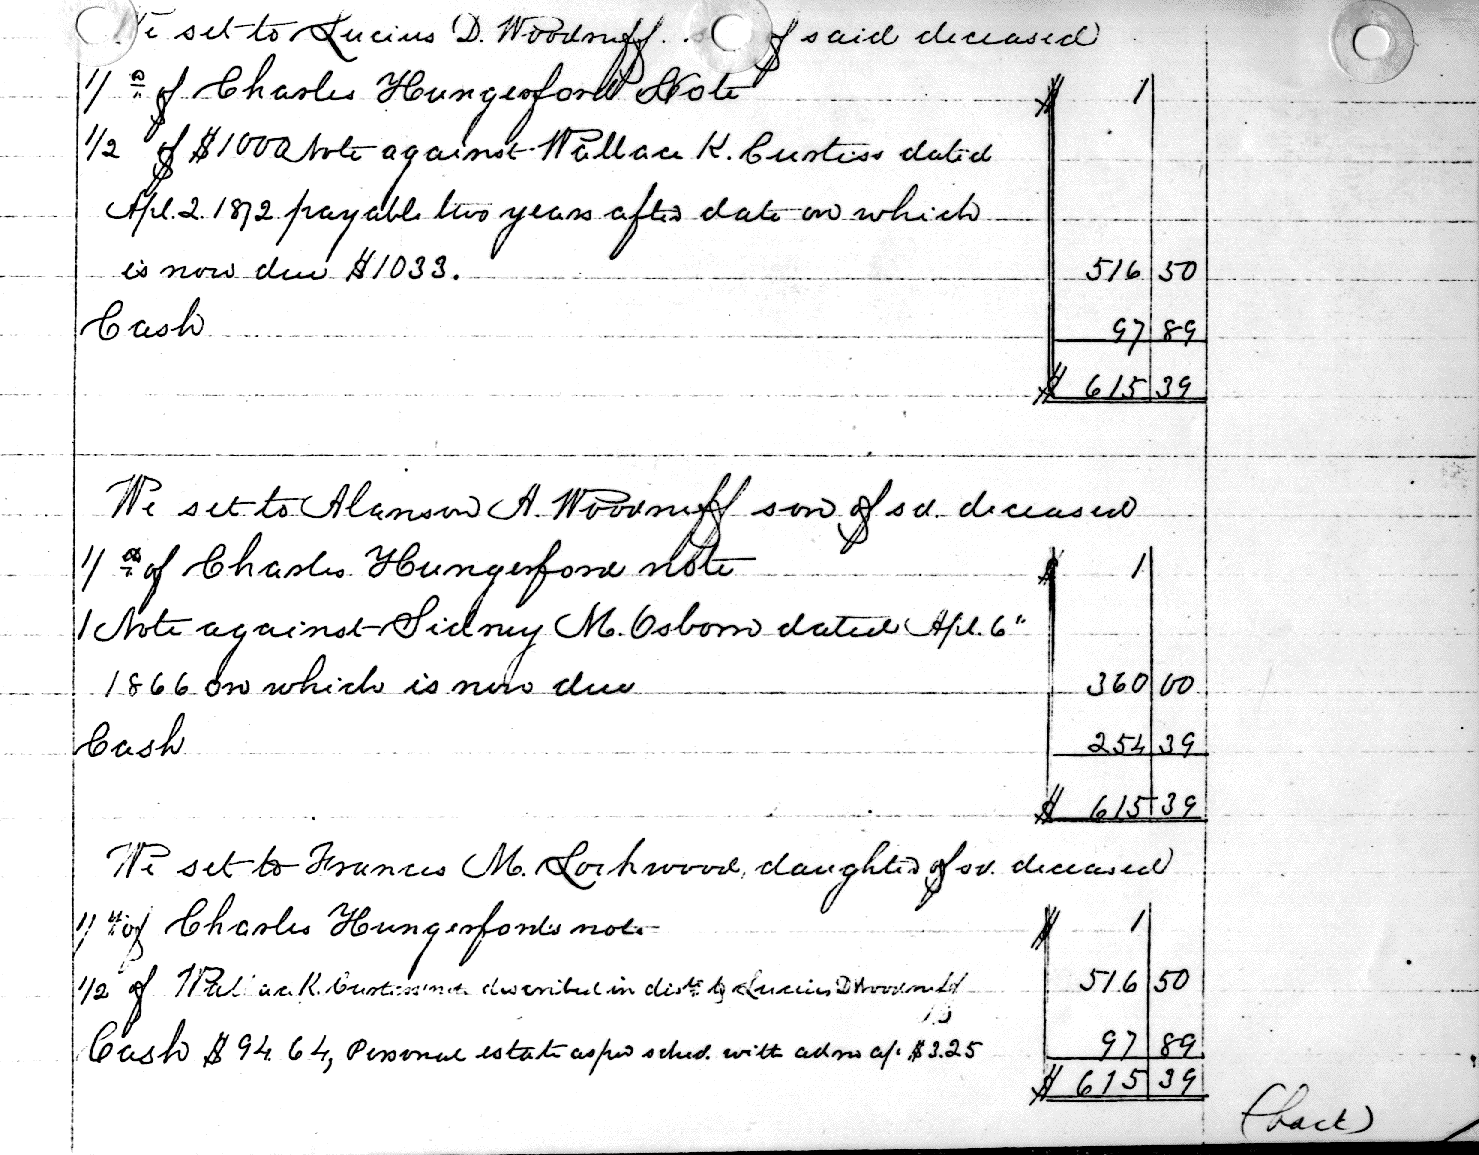 We set to Lucius D. Woodruff s of said deceased
1/ of Charles Hungerford Note $ 1
1/2 of $1000 Note against Wallace K. Curtiss dated
Apl. 2. 1872 payable two years after date on which
is now due $1033. 516 50
Cash 97 89
$ 615 39
We set to Alanson A. Woodruff son of sd. deceased
1/ of Charles Hungerford note $ 1
1 Note against Sidney M. Osborn dated Apl. 6"
1866 on which is now due 360 00
Cash 254 39
$ 615 39
We set to Frances M. Lockwood, daughter of sd. deceased
1/ of Charles Hungerfords note $ 1
1/2 of Wallace K. Curtiss note described in dist. to Lucius D Woodruff 516 50
Cash $94.64, Personal estate as per sched. with admr a/c $3.25 97 89
$ 615 39
(back)